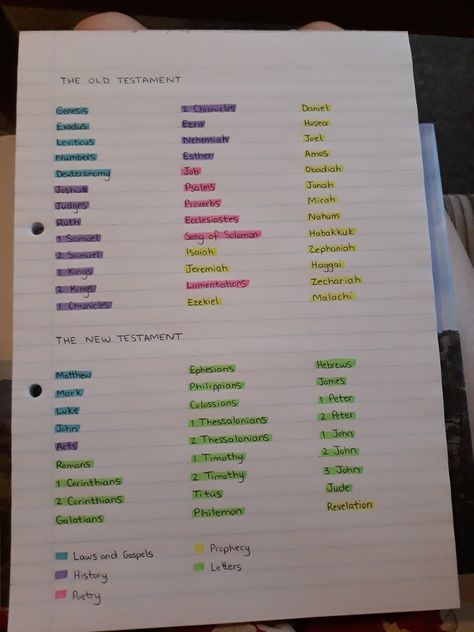 THE OLD TESTAMENT
Genesis
Exodus
Leviticus
Numbers
Deuteronomy
Joshua
Judges
Ruth
1 Samuel
2 Samuel
1 Kings
2 Kings
1 Chronicles
2 Chronicles
Ezra
Nehemiah
Esther
Job
Psalms
Proverbs
Ecclesiastes
Song of Solomon
Isaiah
Jeremiah
Lamentations
Ezekiel
Daniel
Hosea
Joel
Amos
Obadiah
Jonah
Micah
Nahum
Habakkuk
Zephaniah
Haggai
Zechariah
Malachi
THE NEW TESTAMENT
Matthew
Mark
Luke
John
Acts
Romans
1 Corinthians
2 Corinthians
Galatians
Ephesians
Philippians
Colossians
1 Thessalonians
2 Thessalonians
1 Timothy
2 Timothy
Titus
Philemon
Hebrews
James
1 Peter
2 Peter
1 John
2 John
3 John
Jude
Revelation
Laws and Gospels
History
Poetry
Prophecy
Letters